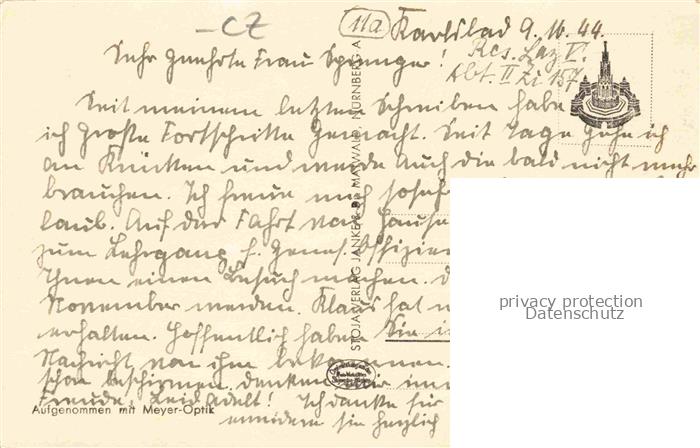 -CZ
11a
Karlsbad 9.10.44.
Res. Laz. V.
Abt. II Zi. 157
Sehr geehrte Frau Sprenger!
Seit meinem letzten Schreiben habe
ich große Fortschritte gemacht. Seit Tage gehe ich
an Krücken und werde auch die bald nicht mehr
brauchen. Ich freue mich sehr
laub. Auf der Fahrt von Hause
zum Lehrgang f. Genes. Offizier
Ihnen einen Besuch machen.
November werden. Klaus hat
erhalten. Hoffentlich haben Sie
Nachricht von ihm bekommen.
schon beschirmen, denken
Freude, Leid adelt! Ich danke für
erwidere sie herzlich
STOJA-VERLAG JANKE & DR. MAIWALD, NÜRNBERG A
Aufgenommen mit Meyer-Optik
privacy protection
Datenschutz